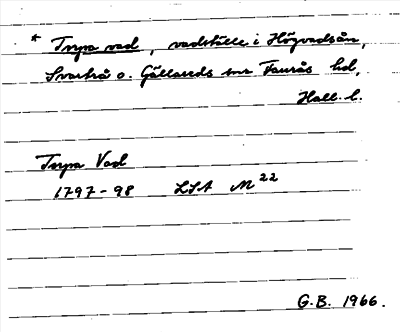 * Torpa vad, vadställe i Högvadsån,
Svartrå o. Gällareds snr Faurås hd,
Hall. l.
Torpa Vad
1797-98 LSA M 22
G.B. 1966.